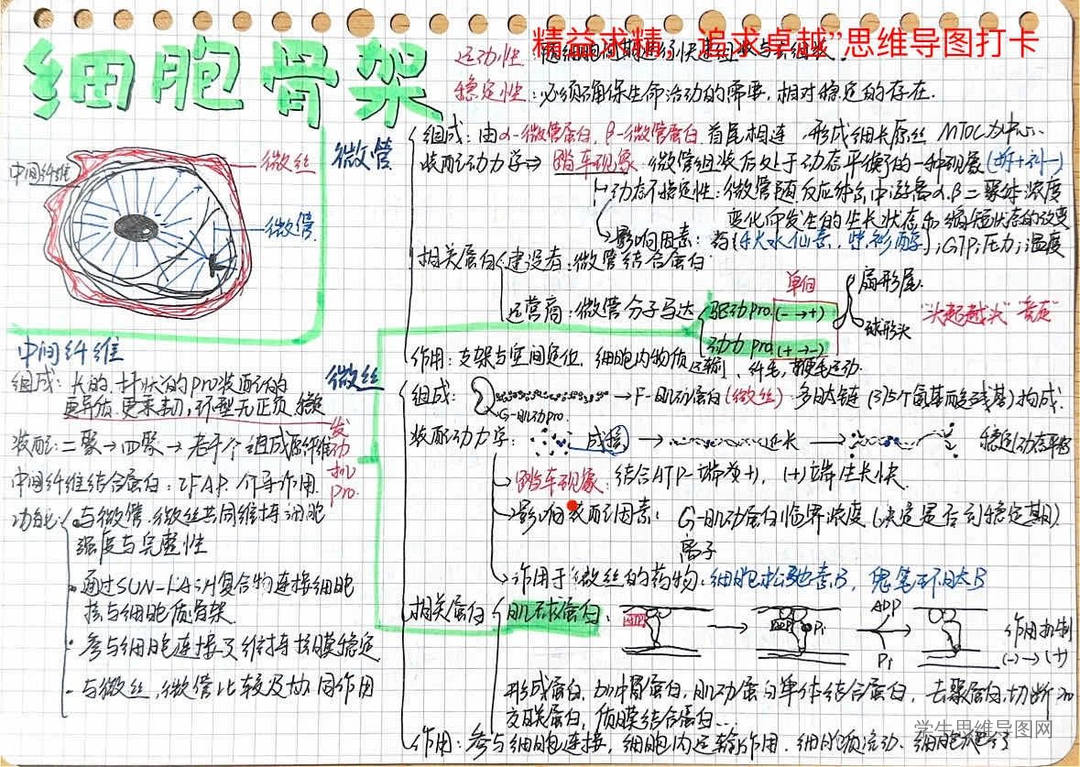 精益求精，追求卓越”思维导图打卡
细胞骨架
运动性
稳定性：必须确保生命活动的需要，相对稳定的存在.
中间纤维
微丝
微管
微管
组成：由α-微管蛋白，β-微管蛋白 首尾相连，形成细长原丝 MTOC为中心.
装配动力学⇒ 踏车现象：微管组装后处于动态平衡的一种现象
动态不稳定性：微管 中游离α.β二聚体浓度
变化而发生的生长状态 缩短状态的改变
影响因素：药(秋水仙素，紫杉醇)；GTP；压力；温度
相关蛋白 建设者：微管结合蛋白.
运营商：微管分子马达
驱动pro.(- → +)
动力pro(+ → -)
单向
扇形尾.
球形头
作用：支架与空间定位，细胞内物质运输，纤毛，鞭毛运动.
中间纤维
组成：长的、杆状的pro装配的
装配：二聚→四聚→
中间纤维结合蛋白：IFAP.介导作用.
功能
·与微管.微丝共同维持细胞
强度与完整性
·通过SUN- 复合物连接细胞
核与细胞质骨架.
·参与细胞连接 维持核膜稳定
·与微丝，微管比较及协同作用
发动机pro.
微丝
组成：
G-肌动pro.
→F-肌动蛋白(微丝)：多肽链(375个氨基酸残基)构成.
装配动力学：
成核
延长
稳定动态平衡
踏车现象：结合ATP一端为+，(+)端生长快.
影响装配因素：G-肌动蛋白临界浓度(决定是否到稳定期)
离子
作用于微丝的药物：细胞松弛素B，鬼笔环肽B
相关蛋白
肌球蛋白：
ADP
Pi
ADP
Pi
作用机制
(-)→(+)
形成蛋白，加帽蛋白，肌动蛋白单体结合蛋白，去聚蛋白，切断和
交联蛋白，质膜结合蛋白...
作用：参与细胞连接，细胞内运输作用.细胞质流动.
学生思维导图网